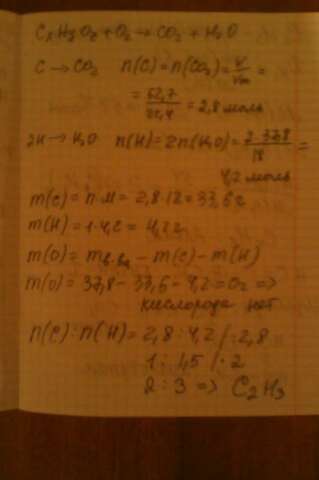 CxHyOz + O2 → CO2 + H2O
C → CO2 n(C) = n(CO2) = V/Vm =
= 62,7/22,4 = 2,8 моль
2H → H2O n(H) = 2n(H2O) = 2·37,8/18 =
4,2 моль
m(C) = n·M = 2,8·12 = 33,6 г
m(H) = 1·4,2 = 4,2 г
m(O) = mв.ва - m(C) - m(H)
m(O) = 37,8 - 33,6 - 4,2 = 0г =>
кислорода нет
n(C) : n(H) = 2,8 : 4,2 /: 2,8
1 : 1,5 /· 2
2 : 3 => C2H3